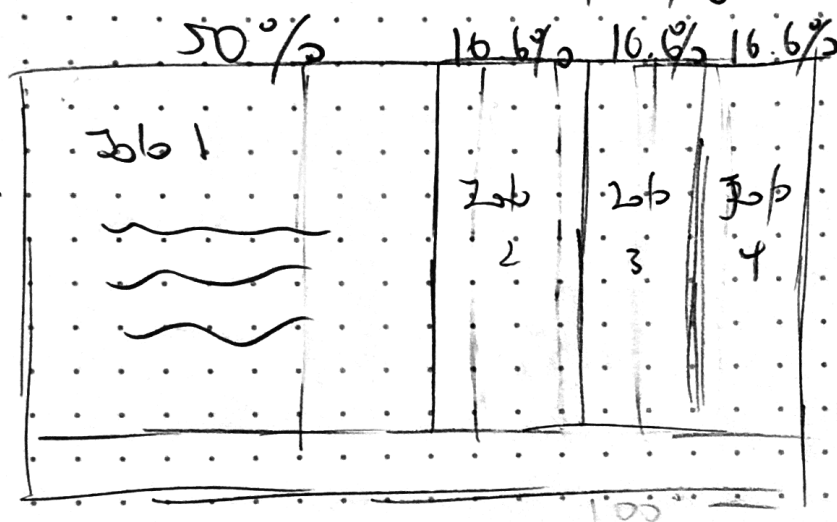 50% 16.6% 16.6% 16.6%
Job 1
Job Job Job
2 3 4
100